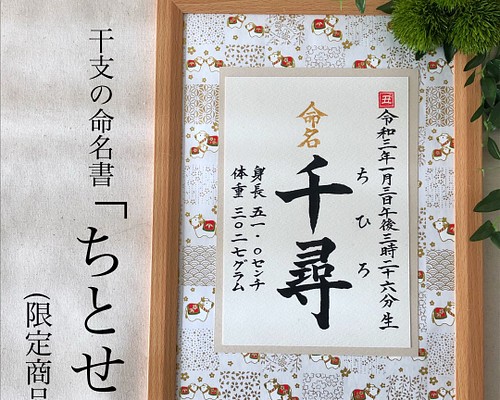 干支の命名書
「ちとせ
(限定商品
丑
令和三年一月三日午後三時二十六分 生
命名
ちひろ
千尋
身長 五一.〇センチ
体重 三〇二七グラム